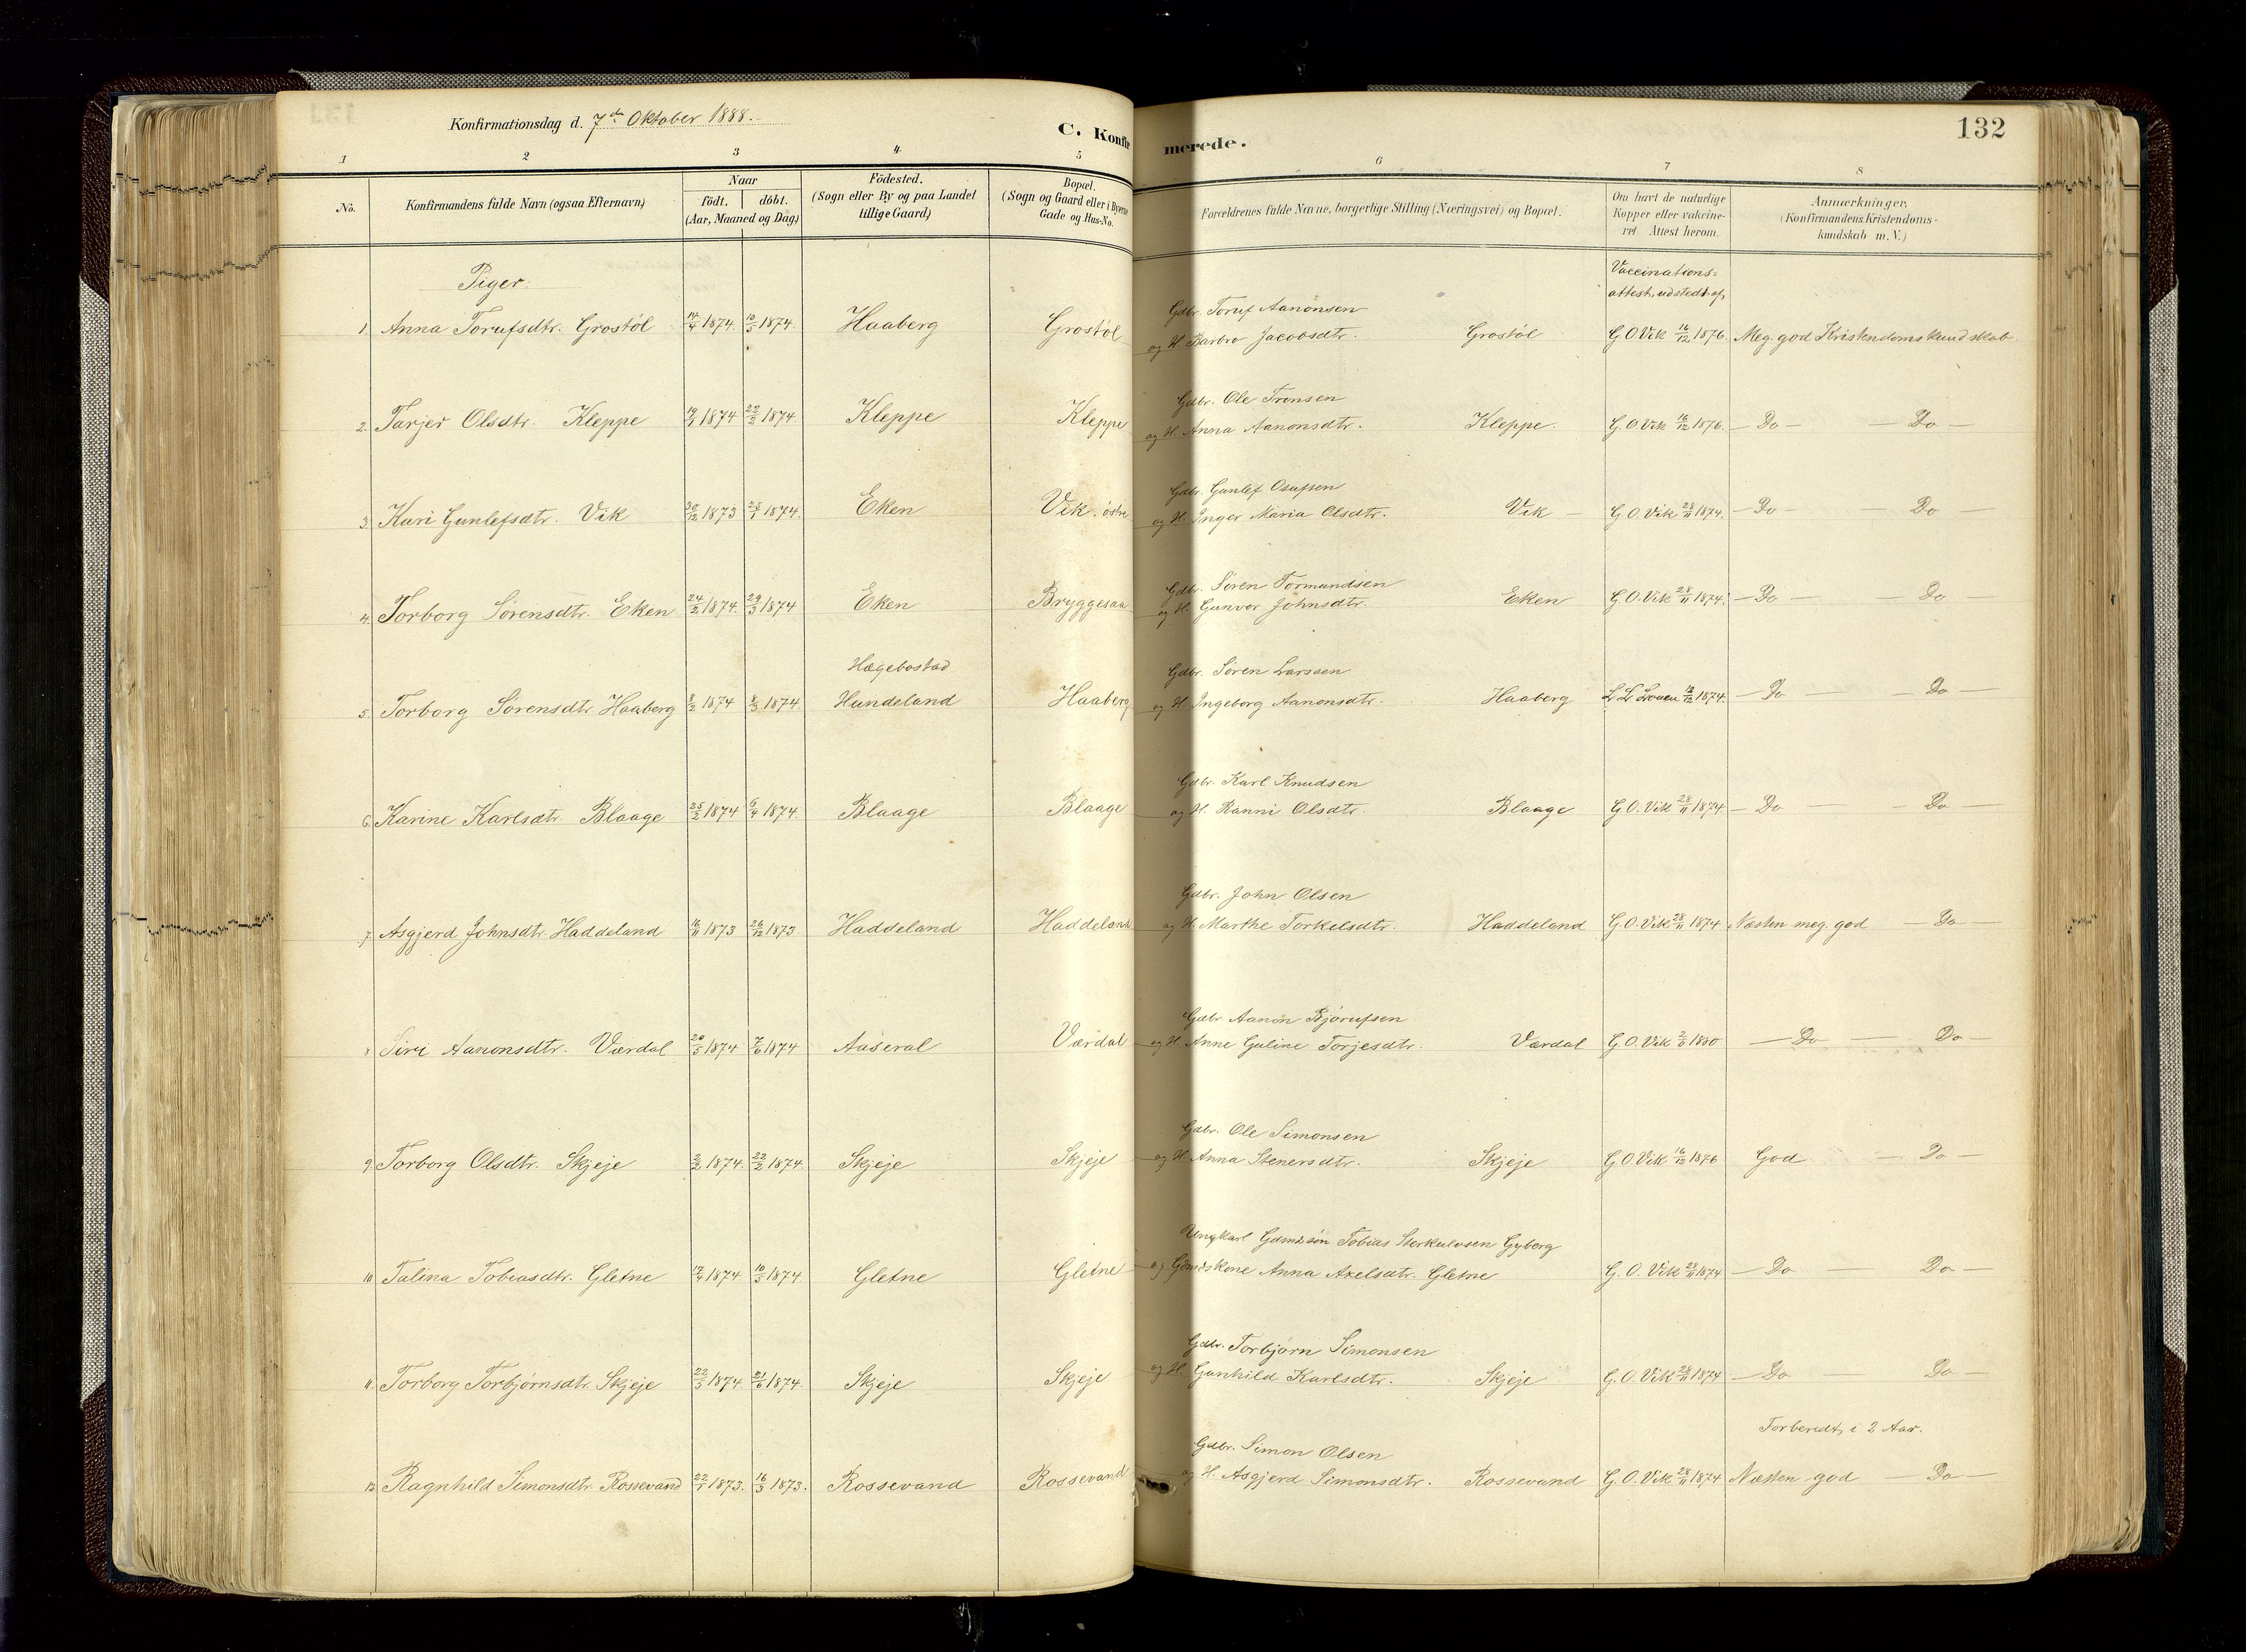 Konfirmationsdag d. 7de Oktober 1888.
C. Konfirmerede.
132
1 2 3 4 5 6 7 8
No.
Konfirmandens fulde Navn (ogsaa Efternavn)
Naar
födt. döbt.
(Aar, Maaned og Dag)
Födested.
(Sogn eller By og paa Landet
tillige Gaard)
Bopæl.
(Sogn og Gaard eller i Byerne
Gade og Hus-No.
Forældrenes fulde Navne, borgerlige Stilling (Næringsvei) og Bopæl.
Om havt de naturlige
Kopper eller vakcine-
ret. Attest herom.
Anmærkninger.
(Konfirmandens Kristendoms-
kundskab m. V.)
Piger.
Vaccinations-
attest, udstedt af,
Gdbr. Toruf Aanonsen
1. Anna Torufsdtr. Grostöl 14/4 1874. 10/5 1874. Haaberg Grostöl og H. Barbro Jacobsdtr. Grostöl G. O. Vik 16/12 1876. Meg. god Kristendomskundskab.
Gdbr. Ole Tronsen
2. Tarjer Olsdtr. Kleppe 19/1 1874 22/2 1874. Kleppe Kleppe og H. Anna Aanonsdtr. Kleppe. G. O. Vik 16/12 1876. — Do — — Do —
Gdbr. Gunlef Osufsen
3. Kari Gunlefsdtr. Vik 30/12 1873 25/1 1874. Eken Vik. östre og H. Inger Maria Olsdtr. Vik — G. O. Vik 28/11 1874. — Do — Do —
Gdbr. Sören Tormundsen
4. Torborg Sörensdtr. Eken 24/2 1874. 29/3 1874 Eken Bryggesaa og H. Gunvor Johnsdtr. Eken G. O. Vik 28/11 1874. — Do — — Do
Hægebostad
Gdbr. Sören Larssen
5. Torborg Sörensdtr. Haaberg 8/2 1874 8/3 1874. Hundeland Haaberg og H. Ingeborg Aanonsdtr. Haaberg 1874. — Do — — Do —
Gdbr. Karl Knudsen
6. Karine Karlsdtr. Blaage 25/2 1874 6/4 1874. Blaage Blaage og H. Ranni Olsdtr. Blaage G. O. Vik 28/11 1874 — Do — — Do —
Gdbr. John Olsen
7. Asgjerd Johnsdtr. Haddeland 16/11 1873 26/12 1873. Haddeland Haddeland og H. Marthe Torkelsdtr. Haddeland G. O. Vik 28/11 1874 Næsten meg. god — Do —
Gdbr Aanon Björufsen
8 Siri Aanonsdtr. Værdal 20/5 1874 7/6 1874 Aaseral Værdal og H. Anne Guline Torjesdtr. Værdal G. O. Vik 1880 — Do — Do —
Gdbr. Ole Simonsen
9. Torborg Olsdtr. Skjeje 2/2 1874. 22/2 1874. Skjeje Skjeje og H. Anna Stenersdtr. Skjeje G. O Vik 16/12 1876 God — Do —
Ungkarl Gdmdsön Tobias Gyberg
10 Talina Tobiasdtr. Gletne 17/4 1874. 10/5 1874 Gletne Gletne og Anna Axelsdtr. Gletne G. O. Vik 28/11 1874 — Do — Do —
Gdbr. Torbjörn Simonsen
11. Torborg Torbjörnsdtr. Skjeje 22/5 1874. 21/6 1874. Skjeje Skjeje og H. Gunhild Karlsdtr. Skjeje G. O. Vik 28/11 1874 — Do — Do —
Forberedt i 2 Aar.
Gdbr. Simon Olsen
12 Ragnhild Simonsdtr. Rossevand 22/1 1873. 16/3 1873. Rossevand Rossevand og H. Asgjerd Simonsdtr. Rossevand G. O. Vik 28/11 1874 Næsten god — Do —